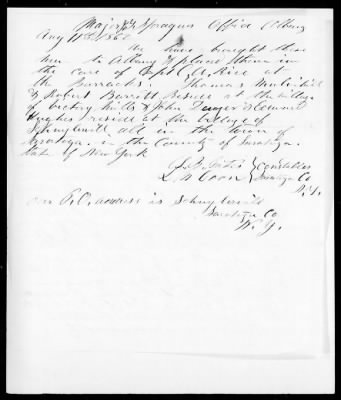 Major Spragues Office Albany
Aug 11th 1862
We have brought these
men to Albany & placed them in
the care of Capt Rice at
the Barracks. Thomas
& Robert Barrett reside at the village
of Victory Mills & John &
Hughes reside at the village of
Schuylerville all in the town of
Saratoga in the County of Saratoga
State of New York
Constables
L Coon Saratoga Co
N.Y.
our P.O. address is Schuylerville
Saratoga Co
N.Y.